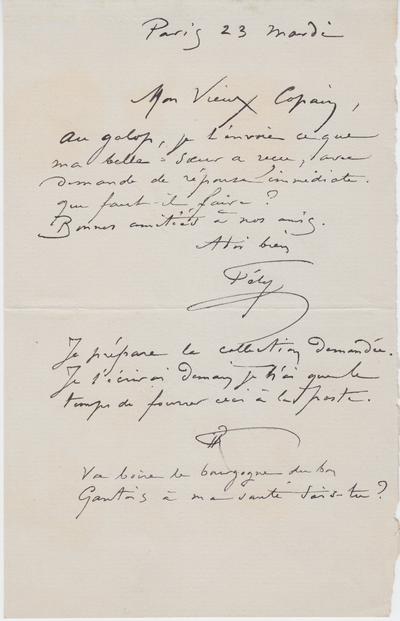 Paris 23 mardi
Mon Vieux Copain,
Au galop, je t'envoie ce que
ma belle-sœur a recu, avec
demande de réponse immédiate.
que faut-il faire ?
Bonnes amitiés à nos amis.
A toi bien
Fély
Je prépare la collection demandée.
Je t'écrirai demain je n'ai que le
temps de fourrer ceci à la poste.
Va boire le bourgogne du bon
Gantois à ma santé sais-tu ?